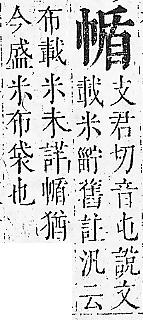 㡒
支君切音屯說文
載米舊註汎云
布載米未詳㡒猶
今盛米布袋也